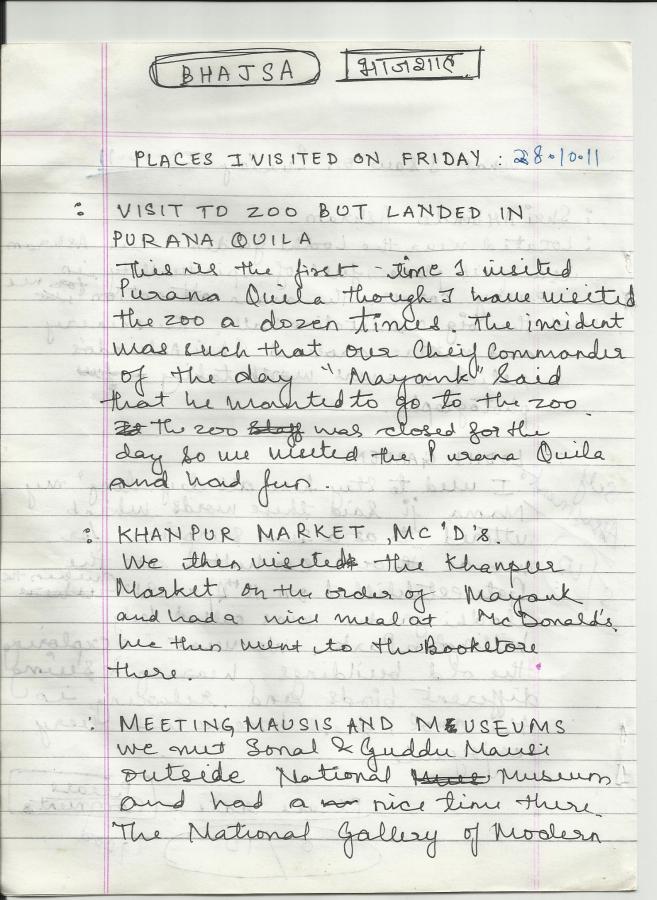 BHAJSA भाजशाह
PLACES I VISITED ON FRIDAY : 28.10.11
: VISIT TO ZOO BUT LANDED IN
PURANA QUILA
This is the first time I visited
Purana Quila though I have visited
the zoo a dozen times. The incident
was such that our Cheif Commander
of the day "Mayank" Said
that he wanted to go to the zoo.
the zoo was closed for the
day so we visited the Purana Quila
and had fun.
: KHANPUR MARKET, MC'D'S.
We then visited the Khanpur
Market on the order of Mayank
and had a nice meal at McDonald's.
We then went to the Bookstore
there.
: MEETING MAUSIS AND MUSEUMS
we met Sonal & Guddu Mausi
outside National Museum
and had a nice time there.
The National Gallery of Modern